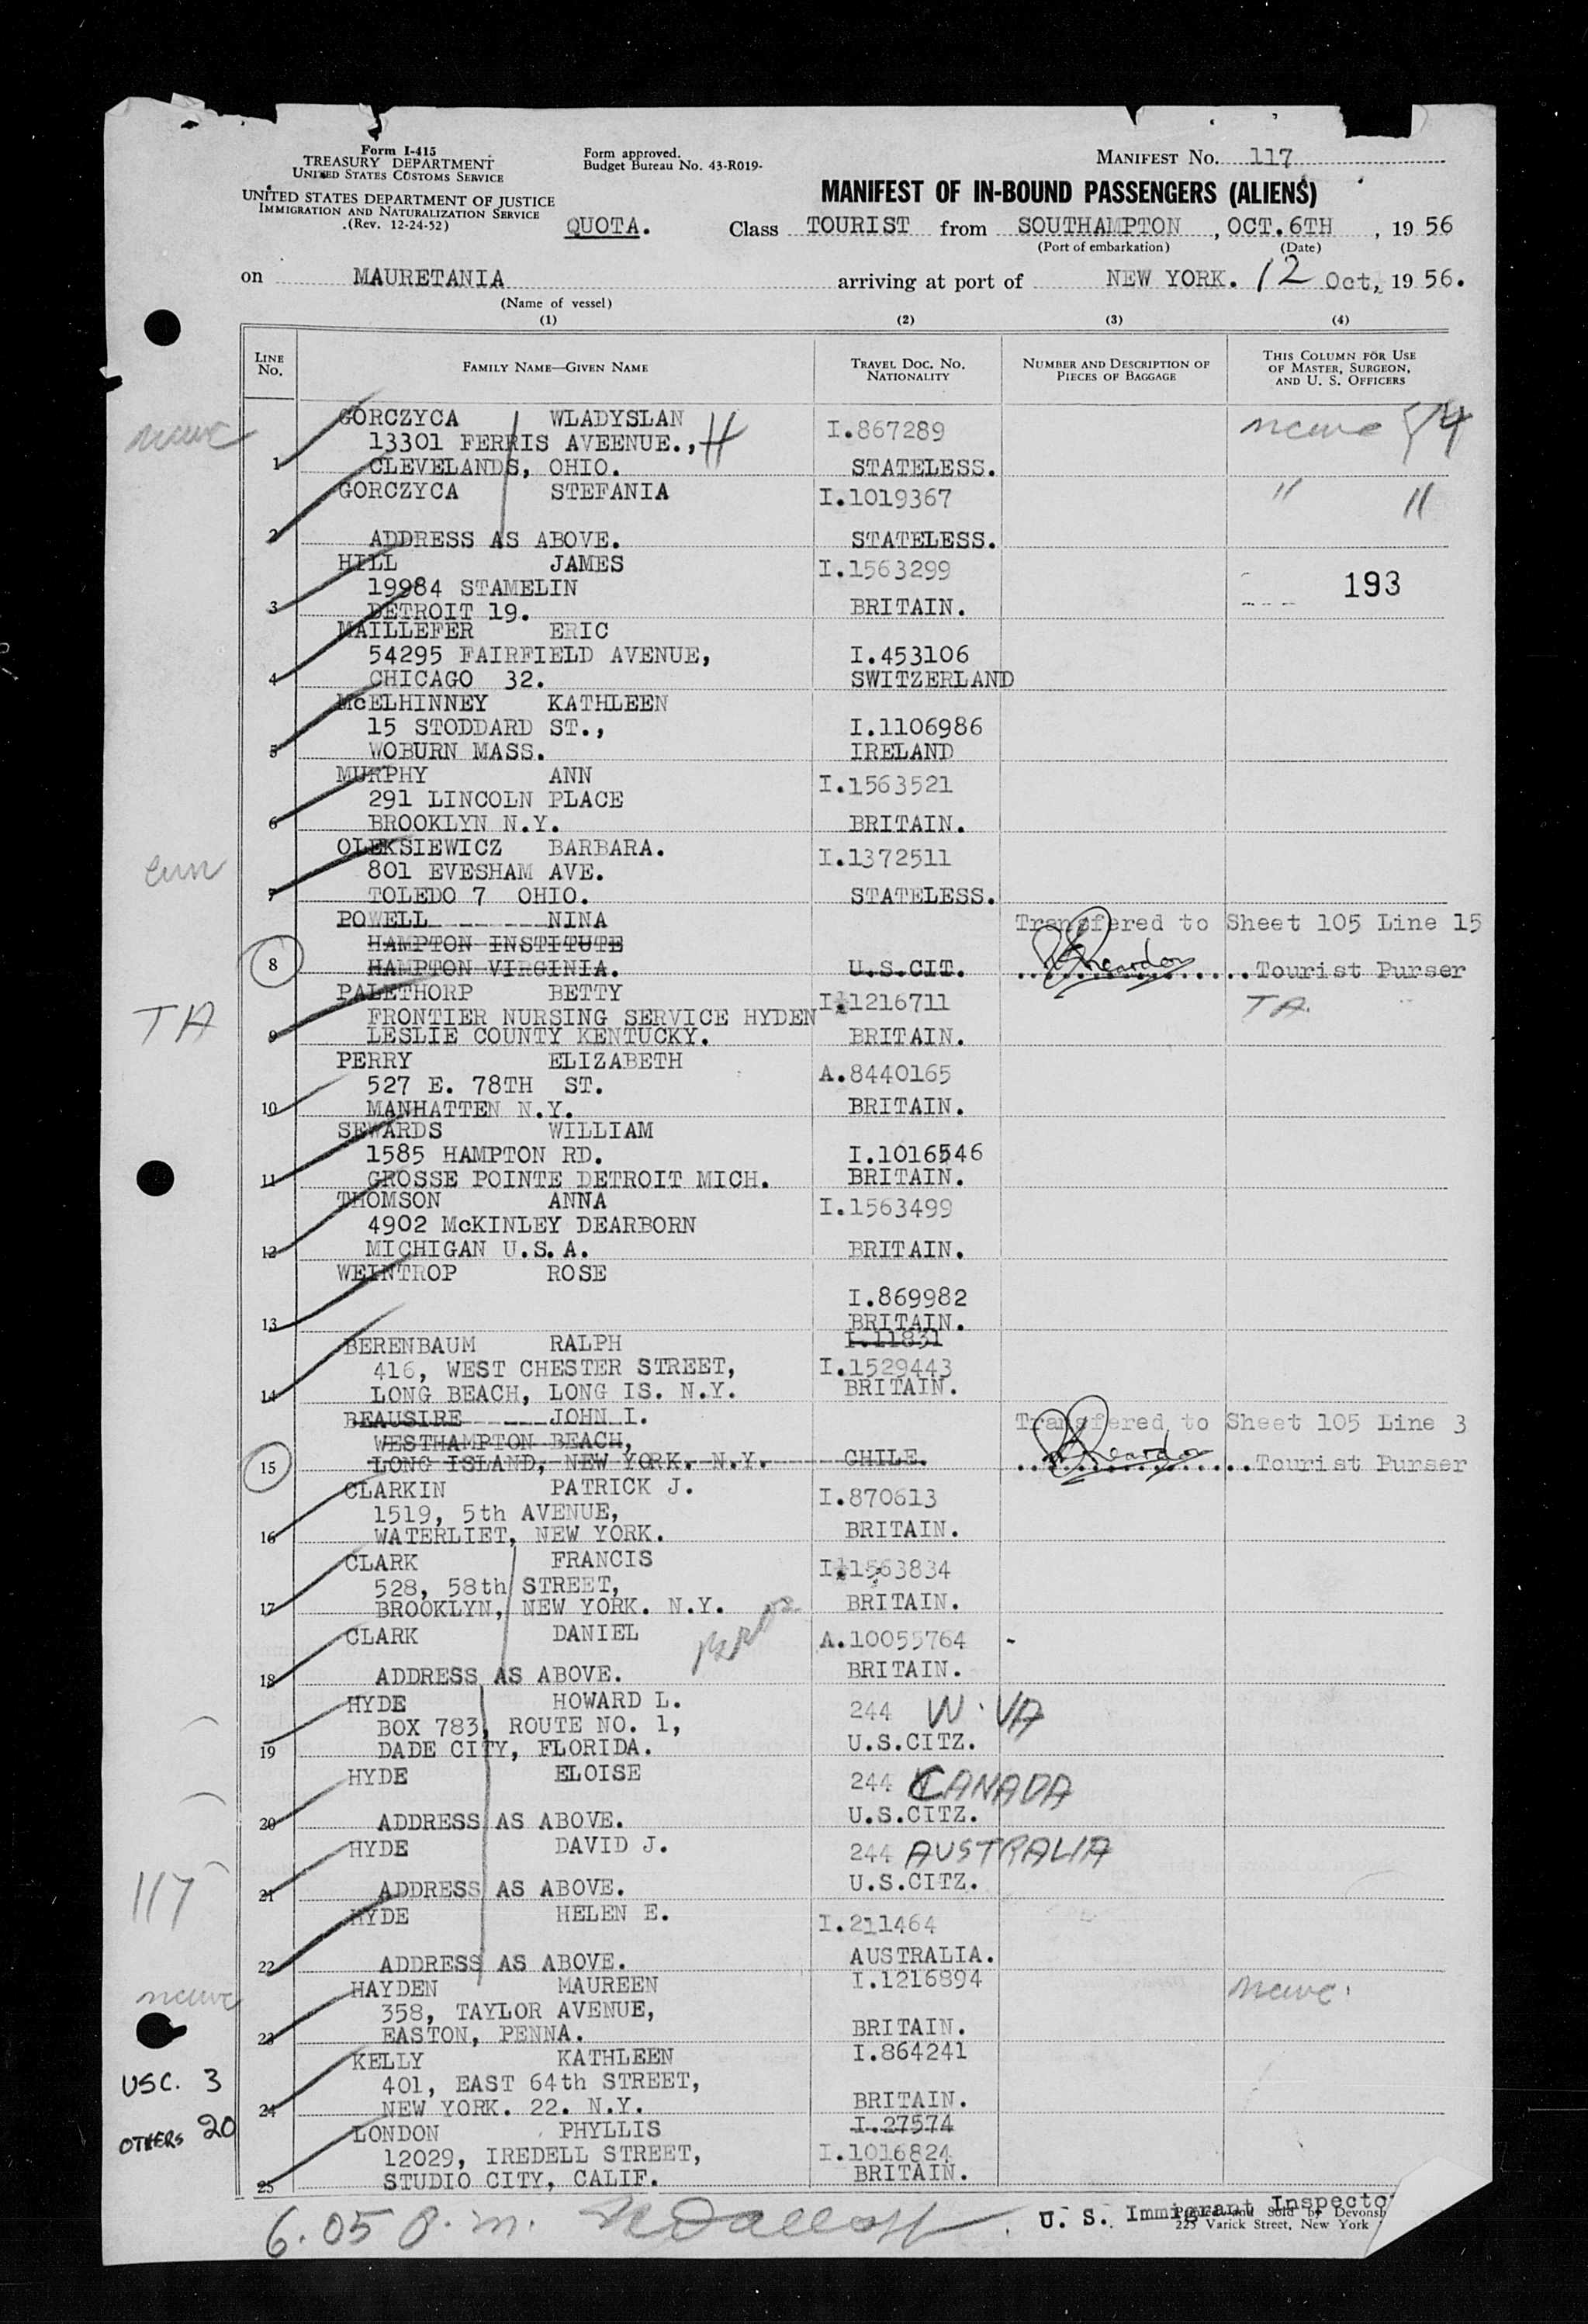 Form I-415
TREASURY DEPARTMENT
UNITED STATES CUSTOMS SERVICE
UNITED STATES DEPARTMENT OF JUSTICE
IMMIGRATION AND NATURALIZATION SERVICE
(Rev. 12-24-52)
Form approved.
Budget Bureau No. 43-R019-
MANIFEST No. 117
MANIFEST OF IN-BOUND PASSENGERS (ALIENS)
QUOTA. Class TOURIST from SOUTHAMPTON, OCT.6TH, 19 56
(Port of embarkation) (Date)
on MAURETANIA arriving at port of NEW YORK. 12 Oct, 19 56.
(Name of vessel)
(1) (2) (3) (4)
LINE No. FAMILY NAME—GIVEN NAME TRAVEL DOC. NO. NATIONALITY NUMBER AND DESCRIPTION OF PIECES OF BAGGAGE THIS COLUMN FOR USE OF MASTER, SURGEON, AND U. S. OFFICERS
GORCZYCA WLADYSLAN I.867289
13301 FERRIS AVEENUE.,
1 CLEVELANDS, OHIO. STATELESS.
GORCZYCA STEFANIA I.1019367 " "
2 ADDRESS AS ABOVE. STATELESS.
HILL JAMES I.1563299
19984 STAMELIN 193
3 DETROIT 19. BRITAIN.
MAILLEFER ERIC
54295 FAIRFIELD AVENUE, I.453106
4 CHICAGO 32. SWITZERLAND
McELHINNEY KATHLEEN
15 STODDARD ST., I.1106986
5 WOBURN MASS. IRELAND
MURPHY ANN I.1563521
291 LINCOLN PLACE
6 BROOKLYN N.Y. BRITAIN.
OLEKSIEWICZ BARBARA. I.1372511
801 EVESHAM AVE.
7 TOLEDO 7 OHIO. STATELESS.
POWELL NINA Transfered to Sheet 105 Line 15
HAMPTON INSTITUTE
8 HAMPTON VIRGINIA. U.S.CIT. Tourist Purser
PALETHORP BETTY I.1216711 TA.
TA FRONTIER NURSING SERVICE HYDEN
9 LESLIE COUNTY KENTUCKY. BRITAIN.
PERRY ELIZABETH A.8440165
527 E. 78TH ST.
10 MANHATTEN N.Y. BRITAIN.
SEWARDS WILLIAM
1585 HAMPTON RD. I.1016546
11 GROSSE POINTE DETROIT MICH. BRITAIN.
THOMSON ANNA I.1563499
4902 McKINLEY DEARBORN
12 MICHIGAN U.S.A. BRITAIN.
WEINTROP ROSE
I.869982
13 BRITAIN.
BERENBAUM RALPH I.11831
416, WEST CHESTER STREET, I.1529443
14 LONG BEACH, LONG IS. N.Y. BRITAIN.
BEAUSIRE JOHN I. Transfered to Sheet 105 Line 3
WESTHAMPTON BEACH,
15 LONG ISLAND, NEW YORK. N.Y. CHILE. Tourist Purser
CLARKIN PATRICK J. I.870613
1519, 5th AVENUE,
16 WATERLIET, NEW YORK. BRITAIN.
CLARK FRANCIS I.1563834
528, 58th STREET,
17 BROOKLYN, NEW YORK. N.Y. BRITAIN.
CLARK DANIEL A.10055764 -
18 ADDRESS AS ABOVE. BRITAIN.
HYDE HOWARD L. 244 W. VA
BOX 783, ROUTE NO. 1,
19 DADE CITY, FLORIDA. U.S.CITZ.
HYDE ELOISE 244 CANADA
20 ADDRESS AS ABOVE. U.S.CITZ.
HYDE DAVID J. 244 AUSTRALIA
21 ADDRESS AS ABOVE. U.S.CITZ.
117 HYDE HELEN E. I.211464
22 ADDRESS AS ABOVE. AUSTRALIA.
HAYDEN MAUREEN I.1216894
358, TAYLOR AVENUE,
23 EASTON, PENNA. BRITAIN.
KELLY KATHLEEN I.864241
USC. 3 401, EAST 64th STREET,
24 NEW YORK. 22. N.Y. BRITAIN.
OTHERS 20 LONDON PHYLLIS I.27574
12029, IREDELL STREET, I.1016824
25 STUDIO CITY, CALIF. BRITAIN.
6.05 p.m. U. S. Immigrant Inspecto
225 Varick Street, New York